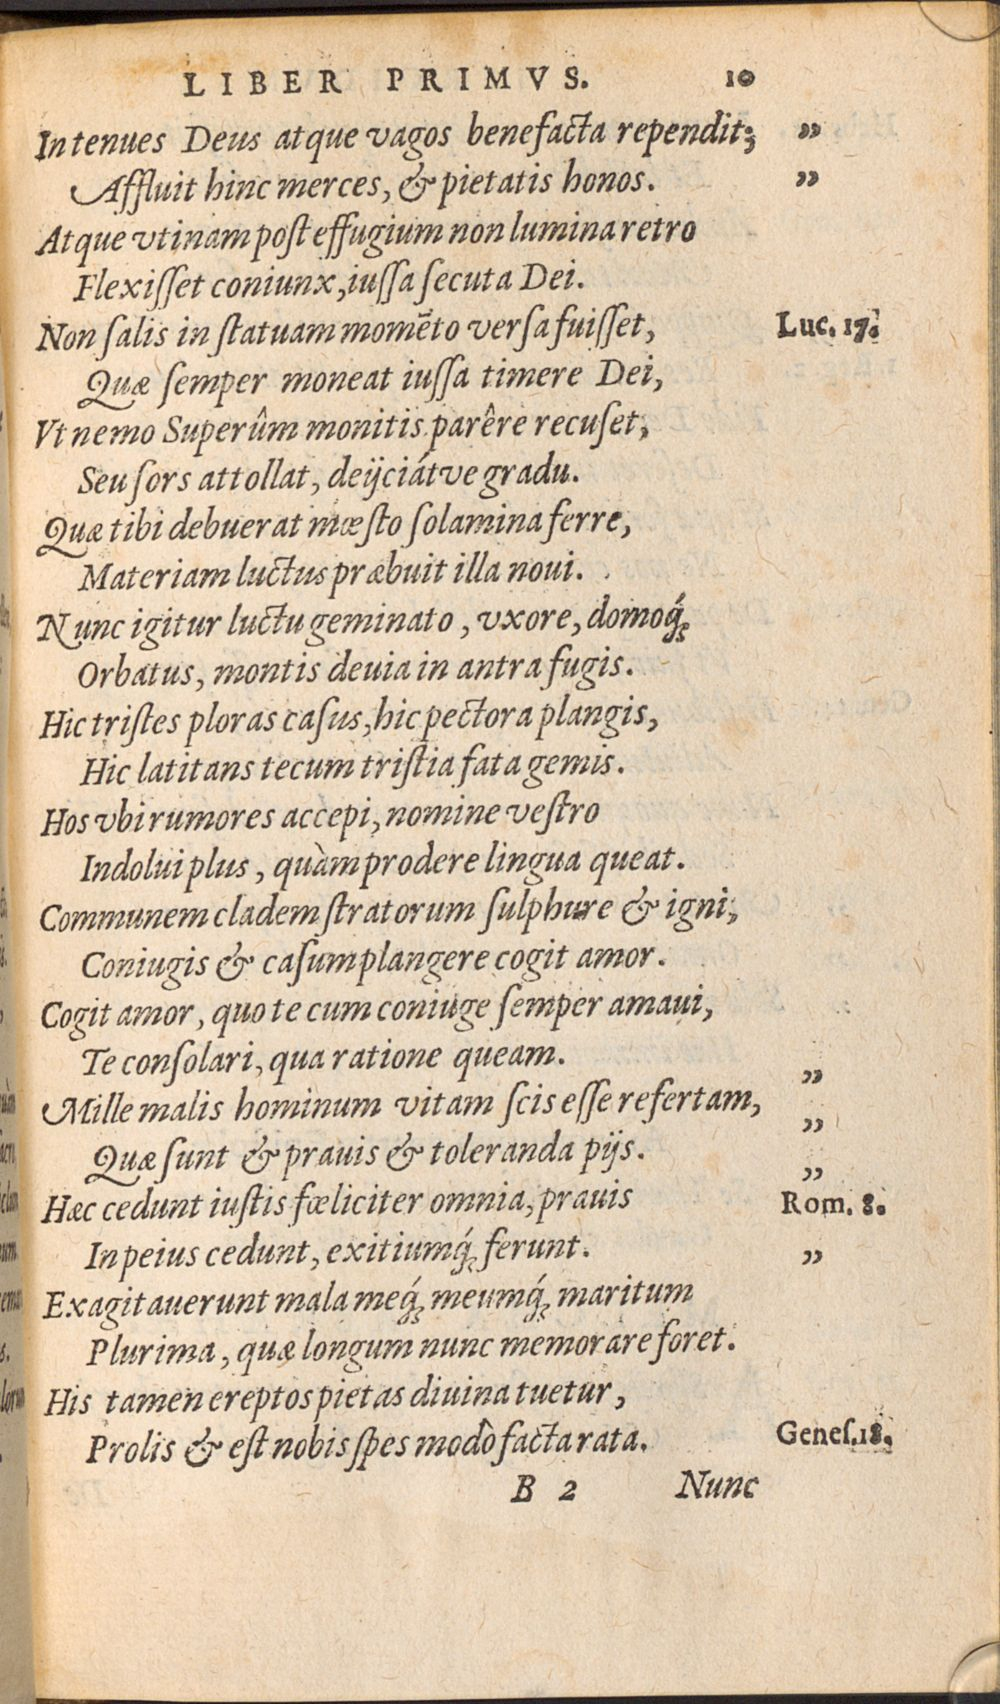 LIBER PRIMVS. 10
In tenues Deus atque vagos benefacta rependit; ”
Affluit hinc merces, & pietatis honos. ”
Atque vtinam poſt effugium non lumina retro
Flexiſſet coniunx, iuſſa ſecuta Dei.
Non ſalis in ſtatuam momēto verſa fuiſſet, Luc. 17.
Quæ ſemper moneat iuſſa timere Dei,
Vt nemo Superûm monitis parêre recuſet,
Seu ſors attollat, deijciátve gradu.
Quæ tibi debuerat mæſto ſolamina ferre,
Materiam luctus præbuit illa noui.
Nunc igitur luctu geminato, vxore, domoq́;
Orbatus, montis deuia in antra fugis.
Hic triſtes ploras caſus, hic pectora plangis,
Hic latitans tecum triſtia fata gemis.
Hos vbi rumores accepi, nomine veſtro
Indolui plus, quàm prodere lingua queat.
Communem cladem ſtratorum ſulphure & igni,
Coniugis & caſum plangere cogit amor.
Cogit amor, quo te cum coniuge ſemper amaui,
Te conſolari, qua ratione queam.
Mille malis hominum vitam ſcis eſſe refertam, ”
Quæ ſunt & prauis & toleranda pijs. ”
Hæc cedunt iuſtis fœliciter omnia, prauis ” Rom. 8.
In peius cedunt, exitiumq́; ferunt. ”
Exagitauerunt mala meq́; meumq́; maritum
Plurima, quæ longum nunc memorare foret.
His tamen ereptos pietas diuina tuetur,
Prolis & eſt nobis ſpes modò facta rata. Geneſ. 18.
B 2 Nunc